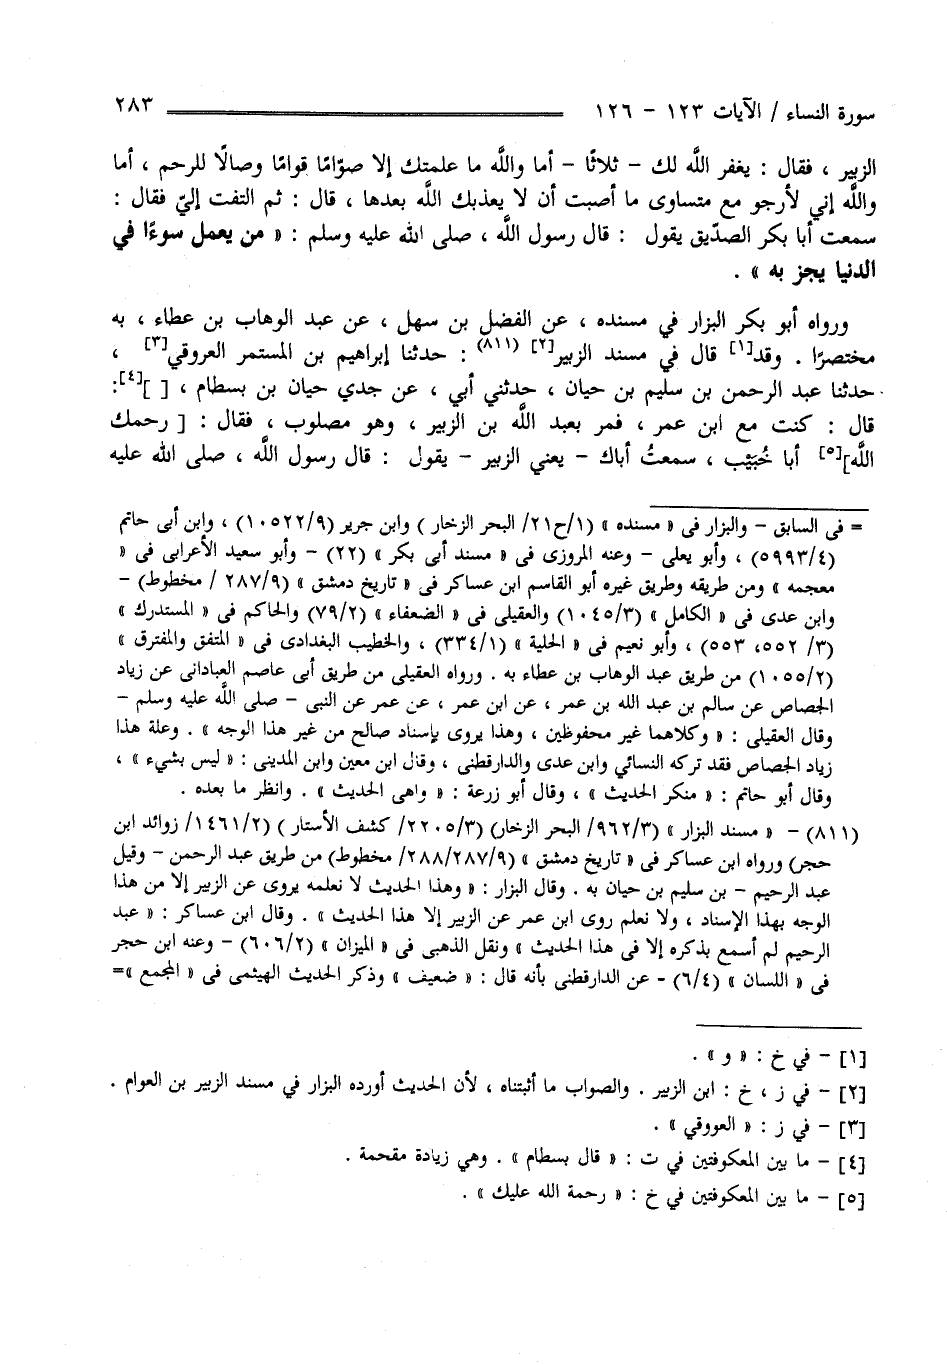 سورة النساء / الآيات ١٢٣ - ١٢٦ ٢٨٣
الزبير ، فقال : يغفر اللَّه لك - ثلاثًا - أما واللَّه ما علمتك إلا صوّامًا قوامًا وصالًا للرحم ، أما
واللَّه إني لأرجو مع متساوى ما أصبت أن لا يعذبك اللَّه بعدها ، قال : ثم التفت إليّ فقال :
سمعت أبا بكر الصدّيق يقول : قال رسول اللَّه ، صلى الله عليه وسلم : « من يعمل سوءًا في
الدنيا يجز به » .
ورواه أبو بكر البزار في مسنده ، عن الفضل بن سهل ، عن عبد الوهاب بن عطاء ، به
مختصرًا . وقد[١] قال في مسند الزبير[٢] (٨١١) : حدثنا إبراهيم بن المستمر العروقي[٣] ،
حدثنا عبد الرحمن بن سليم بن حيان ، حدثني أبي ، عن جدي حيان بن بسطام ، [ ][٤]:
قال : كنت مع ابن عمر ، فمر بعبد اللَّه بن الزبير ، وهو مصلوب ، فقال : [ رحمك
اللَّه][٥] أبا خُبَيْب ، سمعتُ أباك - يعني الزبير - يقول : قال رسول اللَّه ، صلى الله عليه
= فى السابق - والبزار فى « مسنده » (١/ح٢١/ البحر الزخار ) وابن جرير (١٠٥٢٢/٩) ، وابن أبى حاتم
(٥٩٩٣/٤) ، وأبو يعلى - وعنه المروزى فى « مسند أبى بكر » (٢٢) - وأبو سعيد الأعرابى فى «
معجمه » ومن طريقه وطريق غيره أبو القاسم ابن عساكر فى « تاريخ دمشق » (٢٨٧/٩ / مخطوط) -
وابن عدى فى « الكامل » (١٠٤٥/٣) والعقيلى فى « الضعفاء » (٧٩/٢) والحاكم فى « المستدرك »
(٣/ ٥٥٢، ٥٥٣) ، وأبو نعيم فى « الحلية » (٣٣٤/١) ، والخطيب البغدادى فى « المتفق والمفترق »
(١٠٥٥/٢) من طريق عبد الوهاب بن عطاء به . ورواه العقيلى من طريق أبى عاصم العبادانى عن زياد
الجصاص عن سالم بن عبد الله بن عمر ، عن ابن عمر ، عن عمر عن النبى - صلى اللَّه عليه وسلم -
وقال العقيلى : « وكلاهما غير محفوظين ، وهذا يروى بإسناد صالح من غير هذا الوجه » . وعلة هذا
زياد الجصاص فقد تركه النسائي وابن عدى والدارقطنى ، وقال ابن معين وابن المدينى : « ليس بشيء » ،
وقال أبو حاتم : « منكر الحديث » ، وقال أبو زرعة : « واهى الحديث » . وانظر ما بعده .
(٨١١) - « مسند البزار » (٩٦٢/٣/ البحر الزخار) (٢٢٠٥/٣/ كشف الأستار ) (١٤٦١/٢/ زوائد ابن
حجر) ورواه ابن عساكر فى « تاريخ دمشق » (٢٨٨/٢٨٧/٩/ مخطوط) من طريق عبد الرحمن - وقيل
عبد الرحيم - بن سليم بن حيان به . وقال البزار : « وهذا الحديث لا نعلمه يروى عن الزبير إلا من هذا
الوجه بهذا الإسناد ، ولا نعلم روى ابن عمر عن الزبير إلا هذا الحديث » . وقال ابن عساكر : « عبد
الرحيم لم أسمع بذكره إلا فى هذا الحديث » ونقل الذهبى فى « الميزان » (٦٠٦/٢) - وعنه ابن حجر
فى « اللسان » (٦/٤) - عن الدارقطنى بأنه قال : « ضعيف » وذكر الحديث الهيثمى فى « المجمع »=
[١] - في خ : « و » .
[٢] - في ز ، خ : ابن الزبير . والصواب ما أثبتناه ، لأن الحديث أورده البزار في مسند الزبير بن العوام .
[٣] - في ز : « العووقي » .
[٤] - ما بين المعكوفتين في ت : « قال بسطام » . وهي زيادة مقحمة .
[٥] - ما بين المعكوفتين في خ : « رحمة الله عليك » .